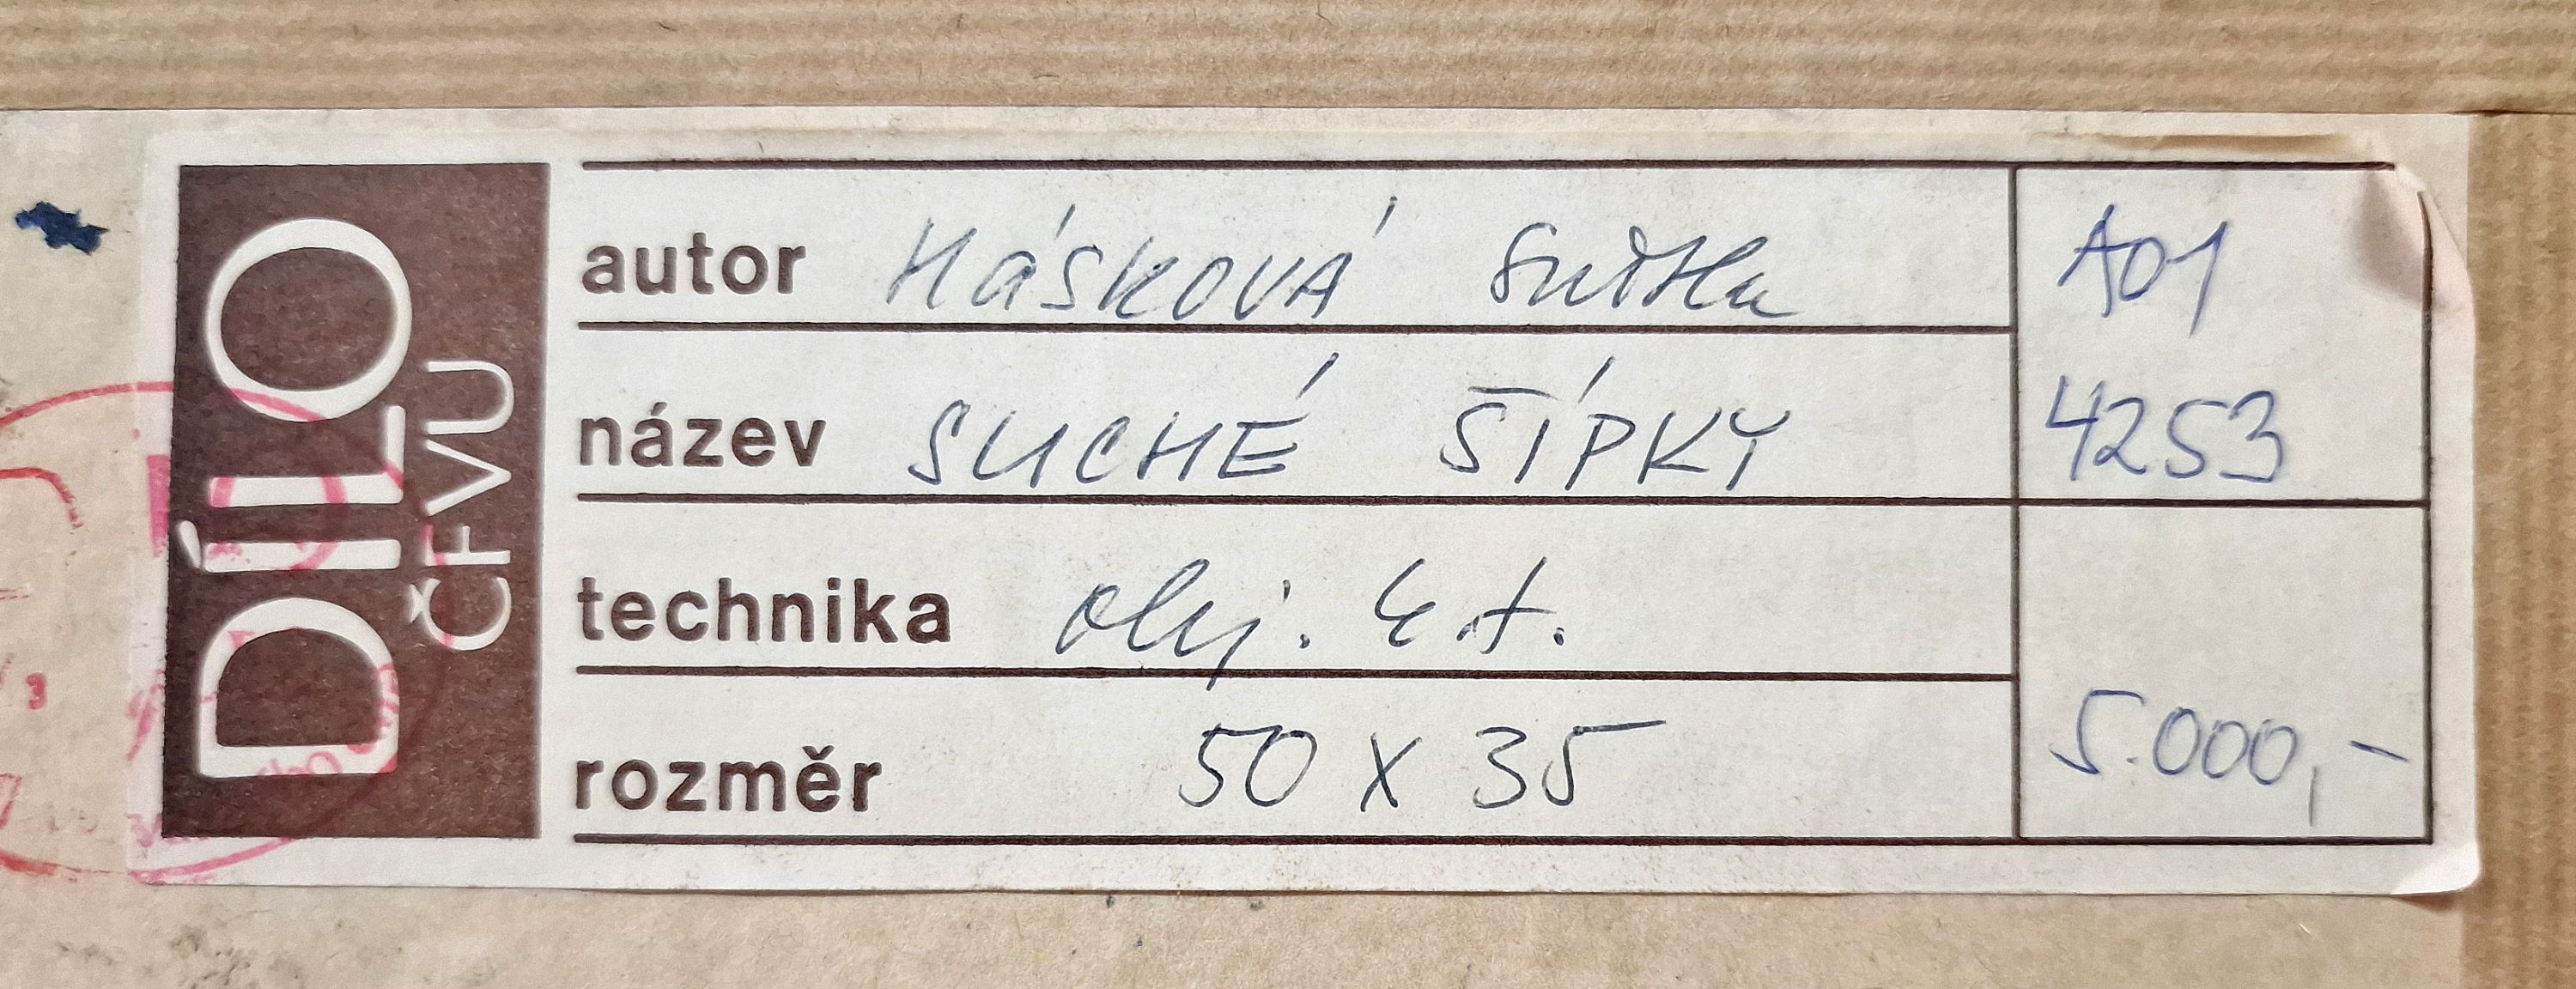 DÍLO
ČFVU
autor HÁSKOVÁ Světla
název SUCHÉ ŠÍPKY
technika olej.
rozměr 50 x 35
A01
4253
5.000,-